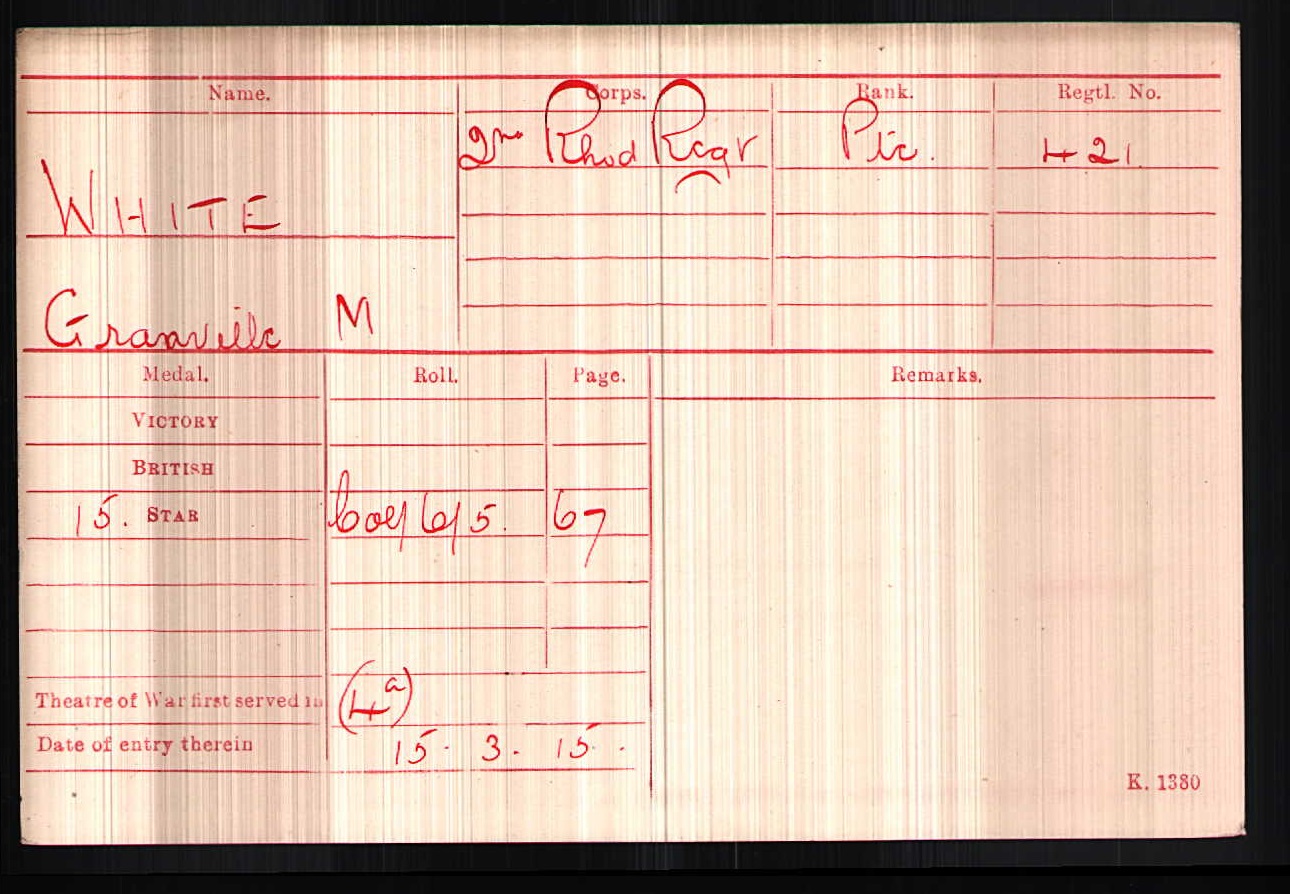 Name. Corps. Rank. Regtl. No.
2nd Rhod Regt Pte. 421.
WHITE
Granville M
Medal. Roll. Page. Remarks.
VICTORY
BRITISH
15. STAR 67
Theatre of War first served in (4a)
Date of entry therein 15. 3. 15.
K. 1380